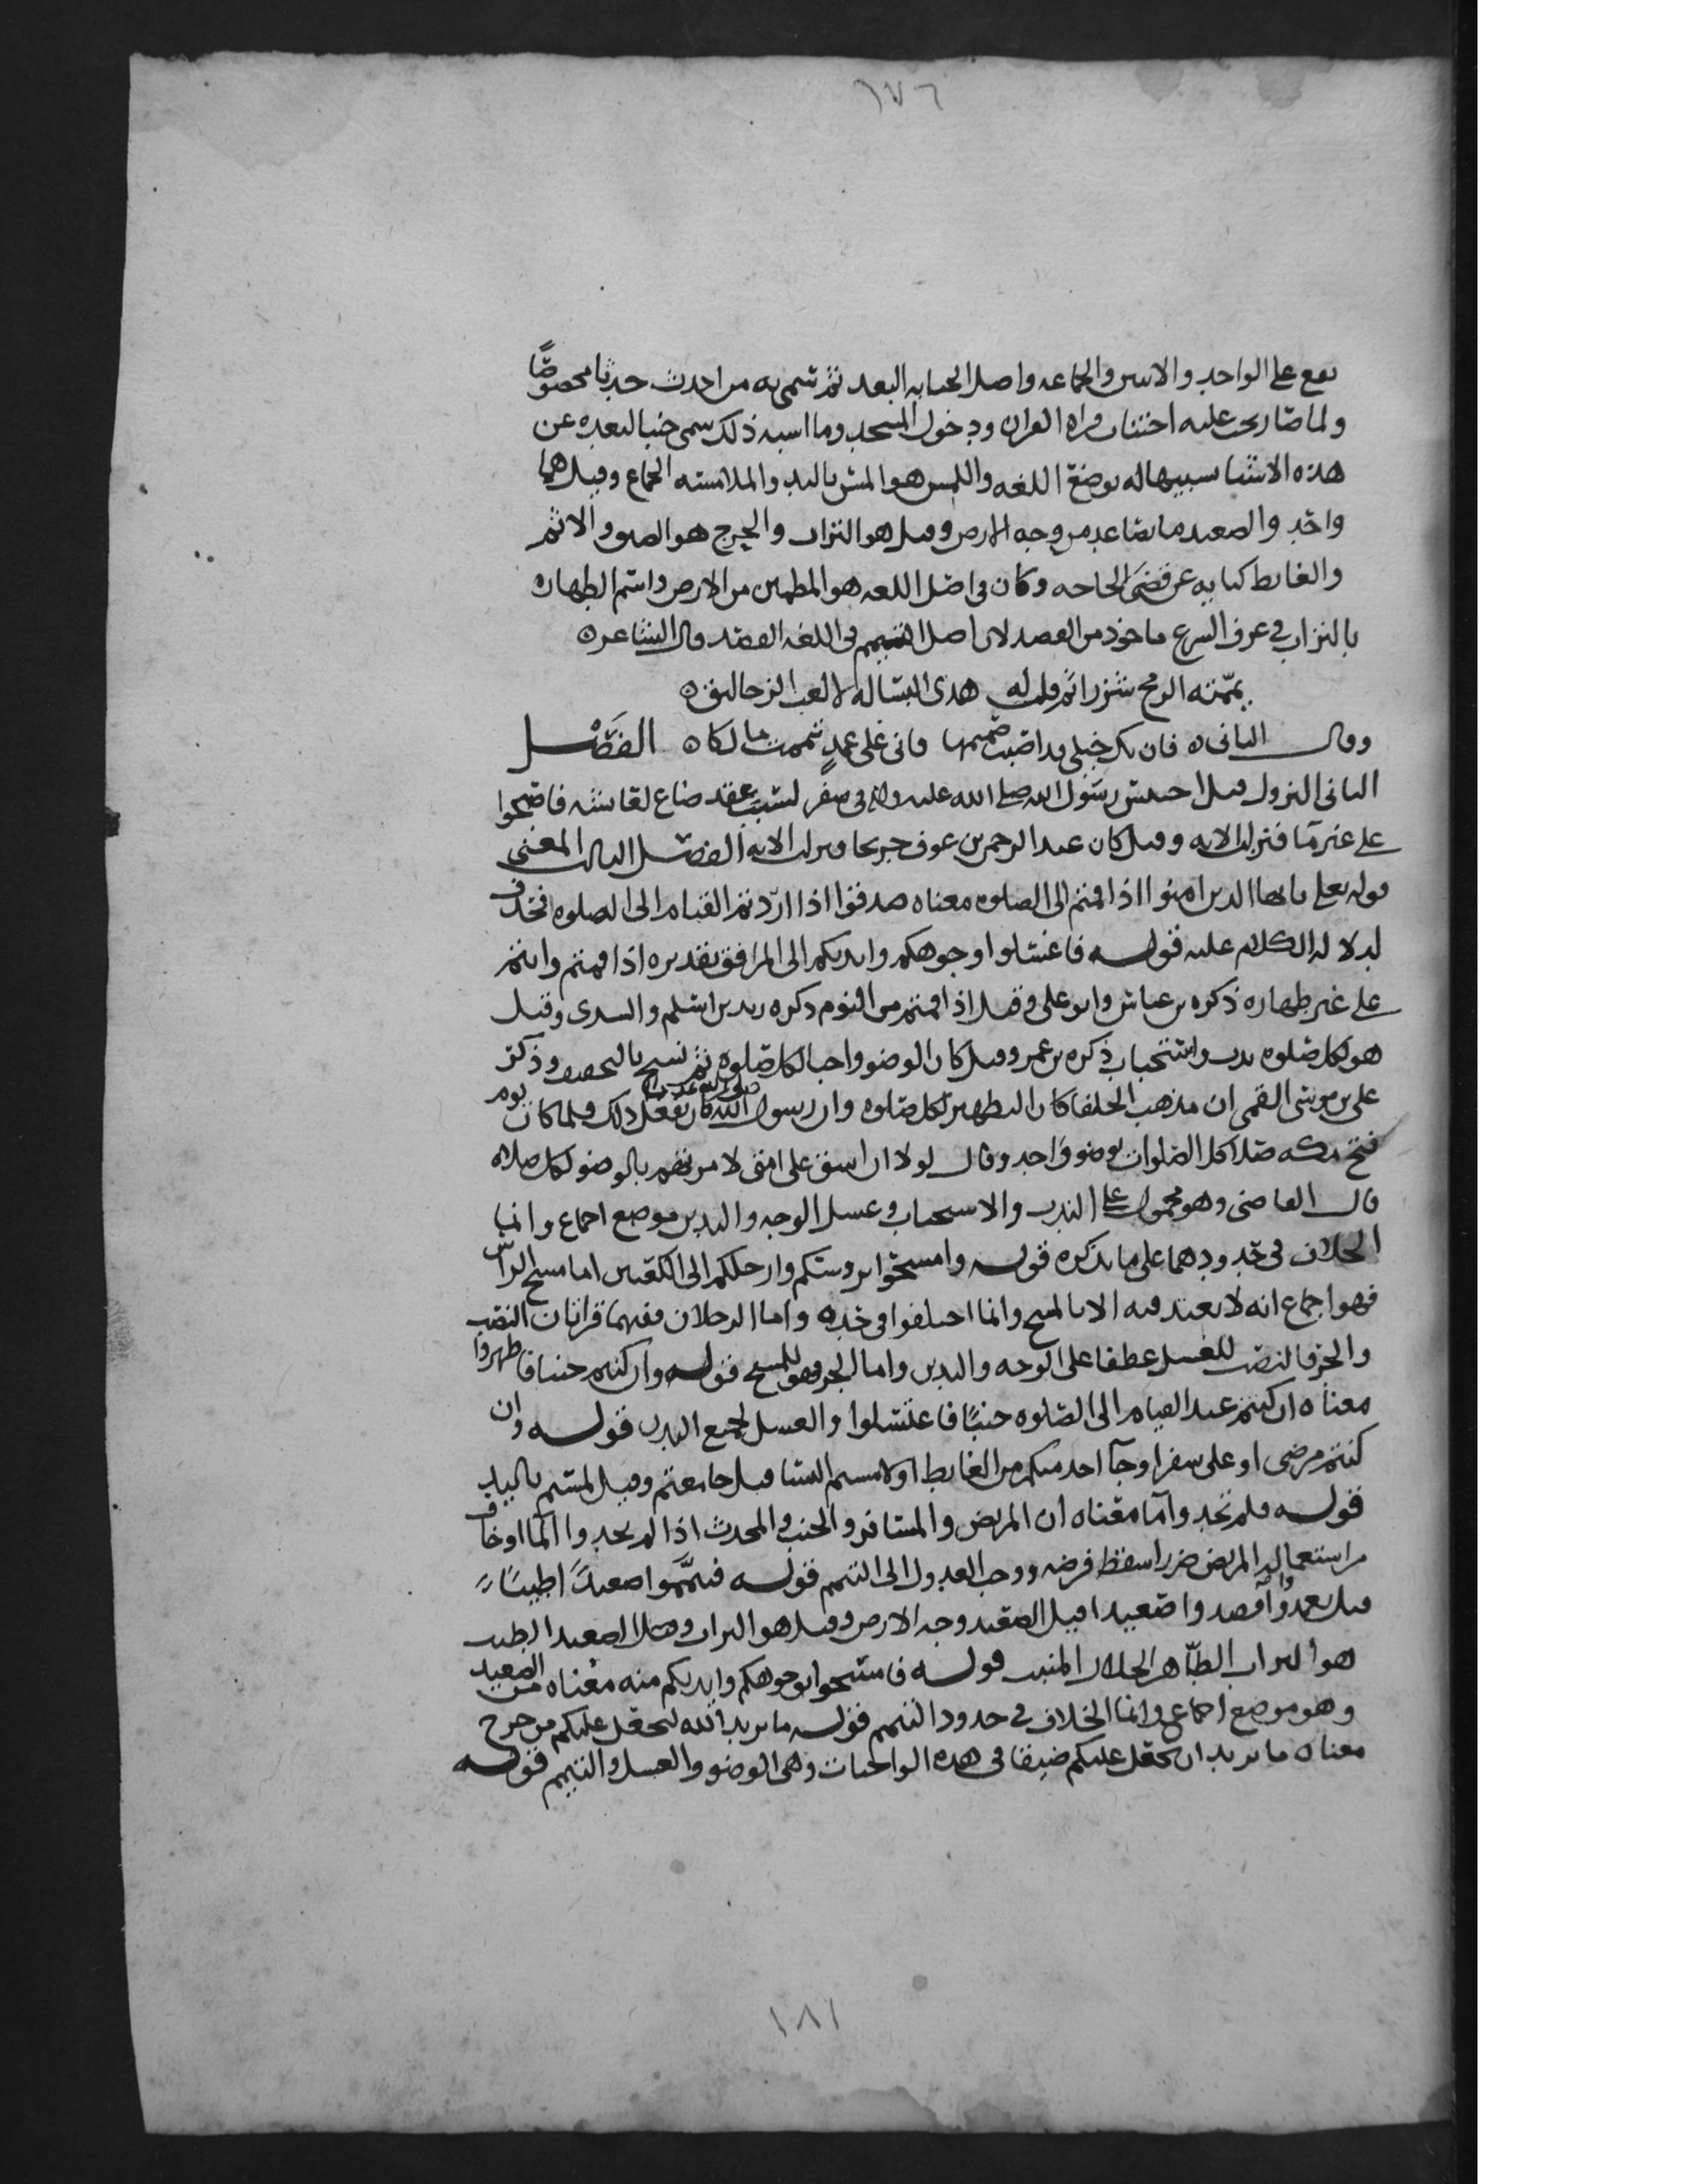 ١٧٦
يقع على الواحد والاثنين والجماعه واصل الجنابه البعد ثم سمي به من احدث حدثا مخصوصًا
ولما صار يجب عليه اجتناب قراه القران ودخول المسجد وما اشبه ذلك سمي جنبا لبعده عن
هذه الاشيا تشبيها له بوضع اللغه واللمس هو المس باليد والملامسه الجماع وقيل هما
واحد والصعيد ما تصاعد من وجه الارض وقيل هو التراب والحرج هو الضيق والاثم
والغايط كنايه عن قضى الحاجه وكان في اصل اللغه هو المطمين من الارض واسم الطهاره
بالتراب في عرف الشرع ماخوذ من القصد لان اصل التيمم في اللغه القصد قال الشاعر ه
يممته الرمح شزرا ثم قلت له هذي البساله لا لعب الزحاليق ه
وقال الثاني ه فان تك خيلي قد اصيب صميمها فاني على عمدٍ تيممت مالكا ه الفصل
الثاني النزول قيل احتبس رسول الله صلى الله عليه واله في سفر لسبب عقد ضاع لعايشه فاصبحوا
على غير مآ فنزلت الايه وقيل كان عبد الرحمن بن عوف جريحا ونزلت الايه الفصل الثالث المعنى
قوله تعلى يايها الذين امنوا اذا قمتم الى الصلوه معناه صدقوا اذا اردتم القيام الى الصلوه فحذف
لدلاله الكلام عليه قوله فاغسلوا وجوهكم وايديكم الى المرافق تقديره اذا قمتم وانتم
على غير طهاره ذكره بن عباس وابو علي وقيل اذا قمتم من النوم ذكره زيد بن اسلم والسدي وقيل
هو لكل صلوه ندب واستحباب ذكره بن عمر وقيل كان الوضو واجبا لكل صلوه ثم نسخ بالتخفيف وذكر
علي بن موسى القمي ان مذهب الخلفا كان التطهير لكل صلوه وان رسول الله صلى الله عليه واله كان يفعل ذلك فلما كان يوم
فتح مكه صلا كل الصلوات بوضو واحد وقال لولا ان اشق على امتي لامرتهم بالوضو لكل صلاه
قال القاضي وهو محمول على الندب والاستحباب وغسل الوجه واليدين موضع اجماع وانما
الخلاف في حدودهما على ما نذكره قوله وامسحوا بروسكم وارجلكم الى الكعبين اما مسح الراس
فهو اجماع انه لا يعتد فيه الا بالمسح وانما اختلفوا في حده واما الرجلان ففيهما قراتان النصب
والجر فالنصب للغسل عطفا على الوجه واليدين واما الجر فهو للمسح قوله وان كنتم جنبا فاطهروا
معناه ان كنتم عند القيام الى الصلوه جنبًا فاغتسلوا والغسل لجميع البدن قوله وان
كنتم مرضى او على سفر او جآ احد منكم من الغايط او لامستم النسا قيل جامعتم وقيل لمستم باليد
قوله فلم تجدوا مآ معناه ان المريض والمسافر والجنب والمحدث اذا لم يجدوا المآ او خاف
من استعماله المريض ضررا سقط فرضه ووجب العدول الى التيمم قوله فتيمموا صعيدًا طيبًا
قيل تعمدوا واقصدوا صعيدا قيل الصعيد وجه الارض وقيل هو التراب وقيل الصعيد الطيب
هو التراب الطاهر الحلال المنبت قوله فامسحوا بوجوهكم وايديكم منه معناه من الصعيد
وهو موضع اجماع وانما الخلاف في حدود التيمم قوله ما يريد الله ليجعل عليكم من حرج
معناه ما يريد ان يجعل عليكم ضيقا في هذه الواجبات وهي الوضو والغسل والتيمم قوله
١٨١